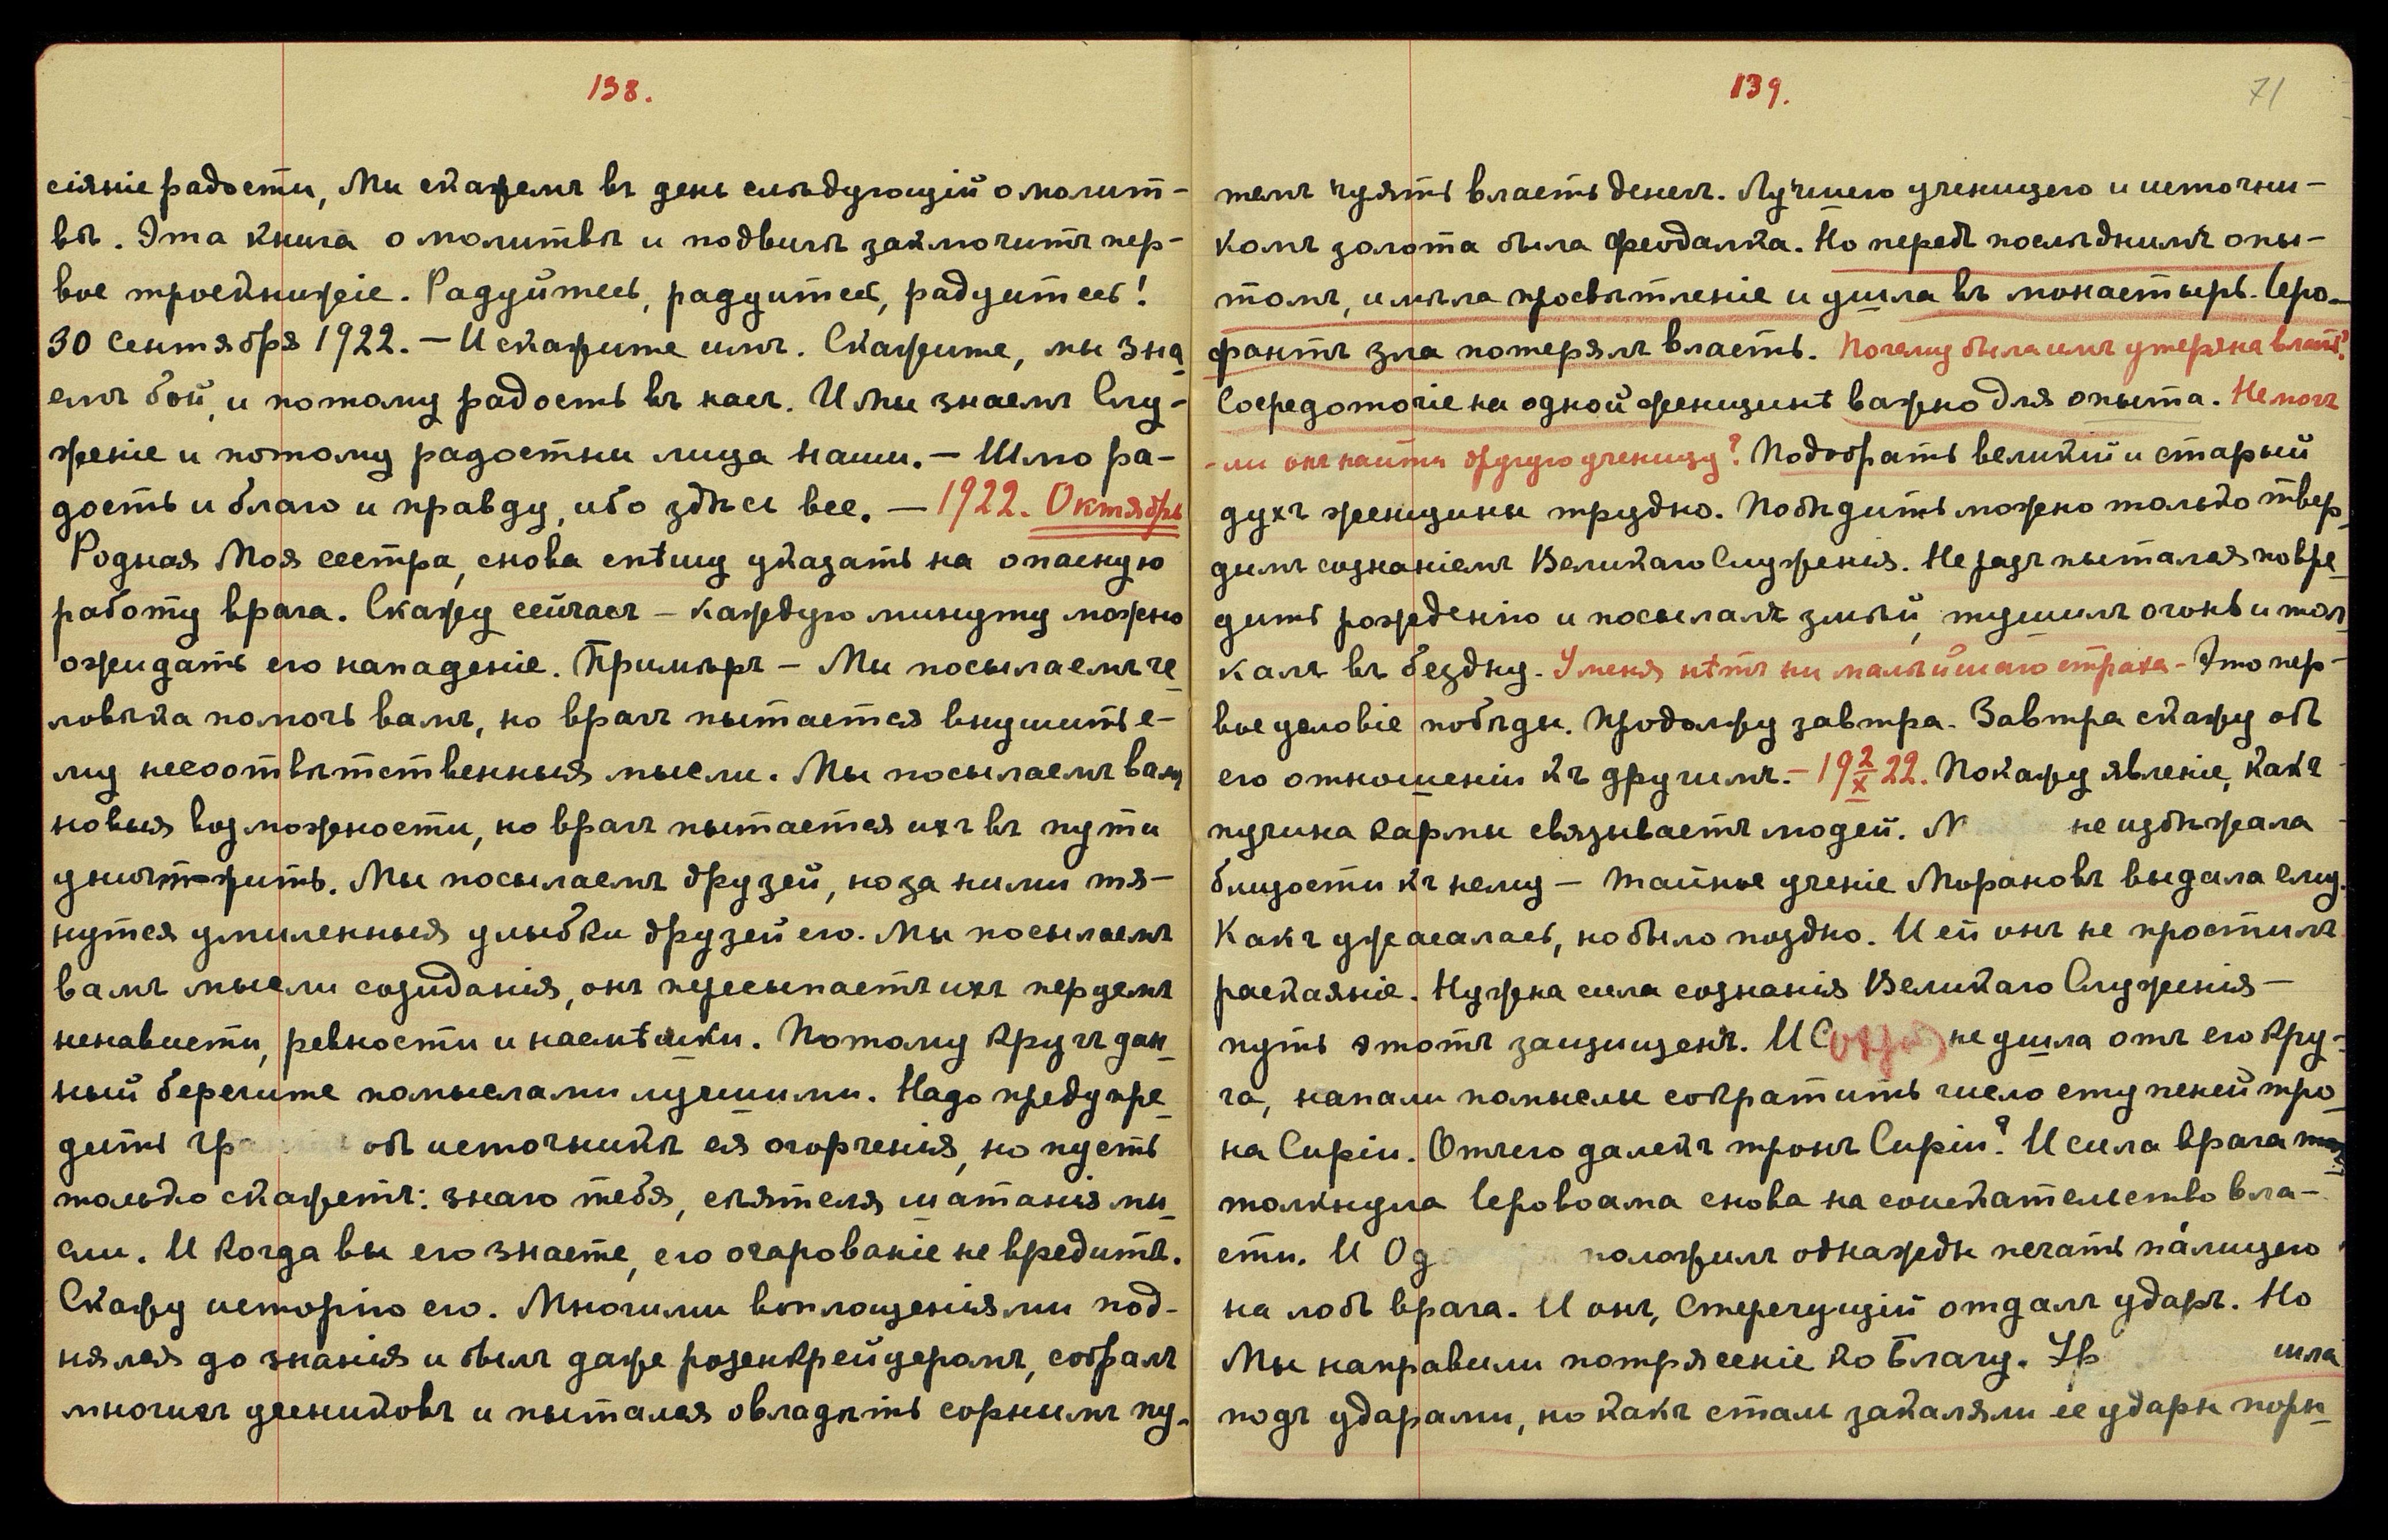 138.
сіяніе радости, Мы скажемъ въ день слѣдующій о молит-
вѣ. Эта книга о молитвѣ и подвигѣ заключитъ пер-
вое троекнижіе. Радуйтесь, радуйтесь, радуйтесь!
30 Сентября 1922. — И скажите имъ. Скажите, мы зна
емъ бой, и потому радость въ насъ. И мы знаемъ Слу-
женіе и потому радостны лица наши. — Шлю ра-
дость и благо и правду, ибо здѣсь все. — 1922. Октябрь
Родная Моя сестра, снова спѣшу указать на опасную
работу врага. Скажу сейчасъ — каждую минуту можно
ожидать его нападеніе. Примѣръ — Мы посылаемъ че
ловѣка помочь вамъ, но врагъ пытается внушить е-
му несоотвѣтственныя мысли. Мы посылаемъ вамъ
новыя возможности, но врагъ пытается ихъ въ пути
уничтожить. Мы посылаемъ друзей, но за ними тя-
нутся умиленныя улыбки друзей его. Мы посылаемъ
вамъ мысли созиданія, онъ пересыпаетъ ихъ перцемъ
ненависти, ревности и насмѣшки. Потому кругъ дан
ный берегите помыслами лучшими. Надо предупре
дить объ источникѣ ея огорченія, но пусть
только скажетъ: знаю тебя, сѣятеля шатанія мы
сли. И когда вы его знаете, его очарованіе не вредитъ.
Скажу исторію его. Многими воплощеніями под-
нялся до знанія и былъ даже розенкрейцеромъ, собралъ
многихъ учениковъ и пытался овладѣть сорнымъ пу-
139.
71
темъ чуять власть денегъ. Лучшею ученицею и источни-
комъ золота была феодалка. Но передъ послѣднимъ опы-
томъ, имѣла просвѣтленіе и ушла въ монастырь. Іеро-
фантъ зла потерялъ власть. Почему была имъ утеряна власть?
Сосредоточіе на одной женщинѣ важно для опыта. Не могъ
-ли онъ найти другую ученицу? Подобрать великій и старый
духъ женщины трудно. Побѣдить можно только твер
дымъ сознаніемъ Великаго Служенія. Не разъ пытался повре
дить рожденію и посылалъ змѣй, тушилъ огонь и тол
калъ въ бездну. У меня нѣтъ ни малѣйшаго страха — Это пер-
вое условіе побѣды. Продолжу завтра. Завтра скажу объ
его отношеніи къ другимъ. — 19 2/X 22. Покажу явленіе, какъ
пучина кармы связываетъ людей. М не избѣжала
близости къ нему — тайное ученіе Морановъ выдала ему.
Какъ ужасалась, но было поздно. И ей онъ не простилъ
раскаяніе. Нужна сила сознанія Великаго Служенія —
путь этотъ защищенъ. И не ушла отъ его кру-
га, напали помыслы сократить число ступеней тро
на Сиріи. Отчего далекъ тронъ Сиріи? И сила врага
толкнула Іеровоама снова на соискательство вла-
сти. И Од положилъ однажды печать па́лицею
на лобъ врага. И онъ, Стерегущій отдалъ ударъ. Но
Мы направили потрясеніе ко Благу. шла
подъ ударами, но какъ сталь закаляли ее удары поры